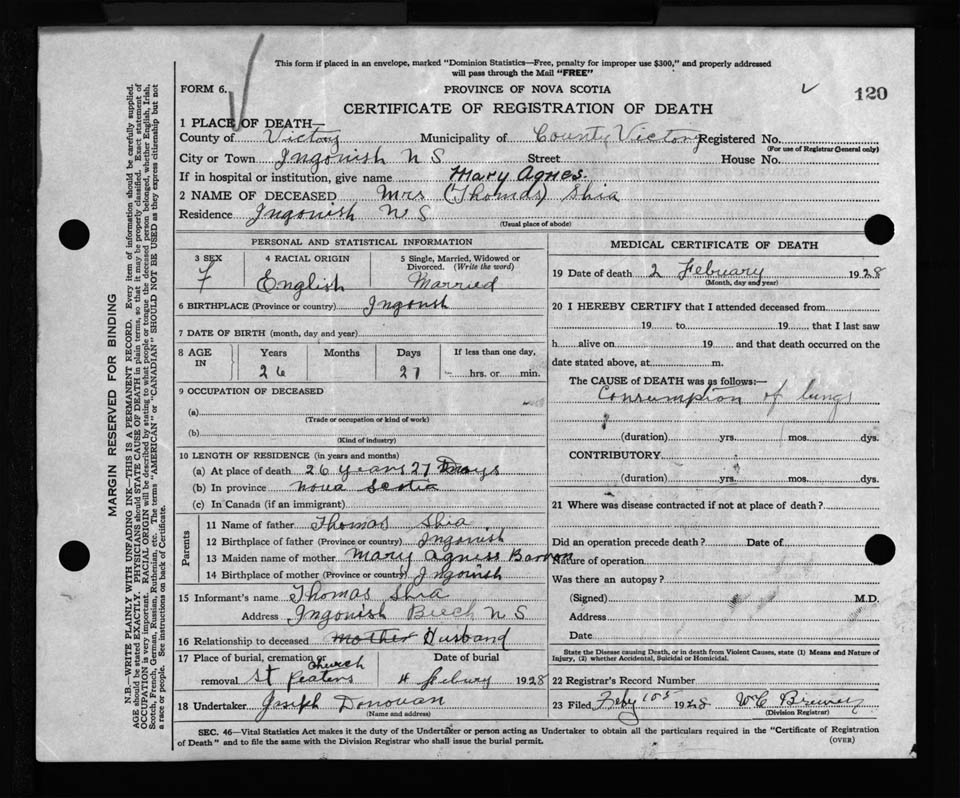 This form if placed in an envelope, marked "Dominion Statistics—Free, penalty for improper use $300," and properly addressed
will pass through the Mail "FREE"
FORM 6.
PROVINCE OF NOVA SCOTIA
120
CERTIFICATE OF REGISTRATION OF DEATH
1 PLACE OF DEATH—
County of Victory Municipality of County Victory Registered No.
(For use of Registrar General only)
City or Town Ingonish N S Street House No.
If in hospital or institution, give name Mary Agnes.
2 NAME OF DECEASED Mrs (Thomas) Shia
Residence Ingonish N S
(Usual place of abode)
PERSONAL AND STATISTICAL INFORMATION
3 SEX 4 RACIAL ORIGIN 5 Single, Married, Widowed or Divorced. (Write the word)
F English Married
6 BIRTHPLACE (Province or country) Ingonish
7 DATE OF BIRTH (month, day and year)
8 AGE IN Years Months Days If less than one day,
26 27 hrs. or min.
9 OCCUPATION OF DECEASED
(a)
(Trade or occupation or kind of work)
(b)
(Kind of industry)
10 LENGTH OF RESIDENCE (in years and months)
(a) At place of death 26 years 27 Days
(b) In province Nova Scotia
(c) In Canada (if an immigrant)
Parents
11 Name of father Thomas Shia
12 Birthplace of father (Province or country) Ingonish
13 Maiden name of mother Mary Agness Barron
14 Birthplace of mother (Province or country) Ingonish
15 Informant's name Thomas Shia
Address Ingonish Beech N S
16 Relationship to deceased mother Husband
17 Place of burial, cremation or removal St Peaters Church Date of burial 4 Febury 1928
18 Undertaker Joseph Donovan
(Name and address)
MEDICAL CERTIFICATE OF DEATH
19 Date of death 2 February 1928
(Month, day and year)
20 I HEREBY CERTIFY that I attended deceased from
19 to 19 that I last saw
h alive on 19 and that death occurred on the
date stated above, at m.
The CAUSE of DEATH was as follows:—
Consumption of lungs
(duration) yrs. mos. dys.
CONTRIBUTORY
(duration) yrs. mos. dys.
21 Where was disease contracted if not at place of death?
Did an operation precede death? Date of
Nature of operation
Was there an autopsy?
(Signed) M.D.
Address
Date
State the Disease causing Death, or in death from Violent Causes, state (1) Means and Nature of
Injury, (2) whether Accidental, Suicidal or Homicidal.
22 Registrar's Record Number
23 Filed Feby 10 1928 W C
(Division Registrar)
SEC. 46—Vital Statistics Act makes it the duty of the Undertaker or person acting as Undertaker to obtain all the particulars required in the "Certificate of Registration
of Death" and to file the same with the Division Registrar who shall issue the burial permit.
(OVER)
MARGIN RESERVED FOR BINDING
N.B.—WRITE PLAINLY WITH UNFADING INK—THIS IS A PERMANENT RECORD. Every item of information should be carefully supplied.
AGE should be stated EXACTLY. PHYSICIANS should STATE CAUSE OF DEATH in plain terms, so that it may be properly classified. Exact statement of
OCCUPATION is very important. RACIAL ORIGIN will be described by stating to what people or tongue the deceased person belonged, whether English, Irish,
Scotch, French, German, Russian, Ruthenian, etc. The terms "AMERICAN" or "CANADIAN" SHOULD NOT BE USED as they express citizenship but not
a race or people. See instructions on back of Certificate.